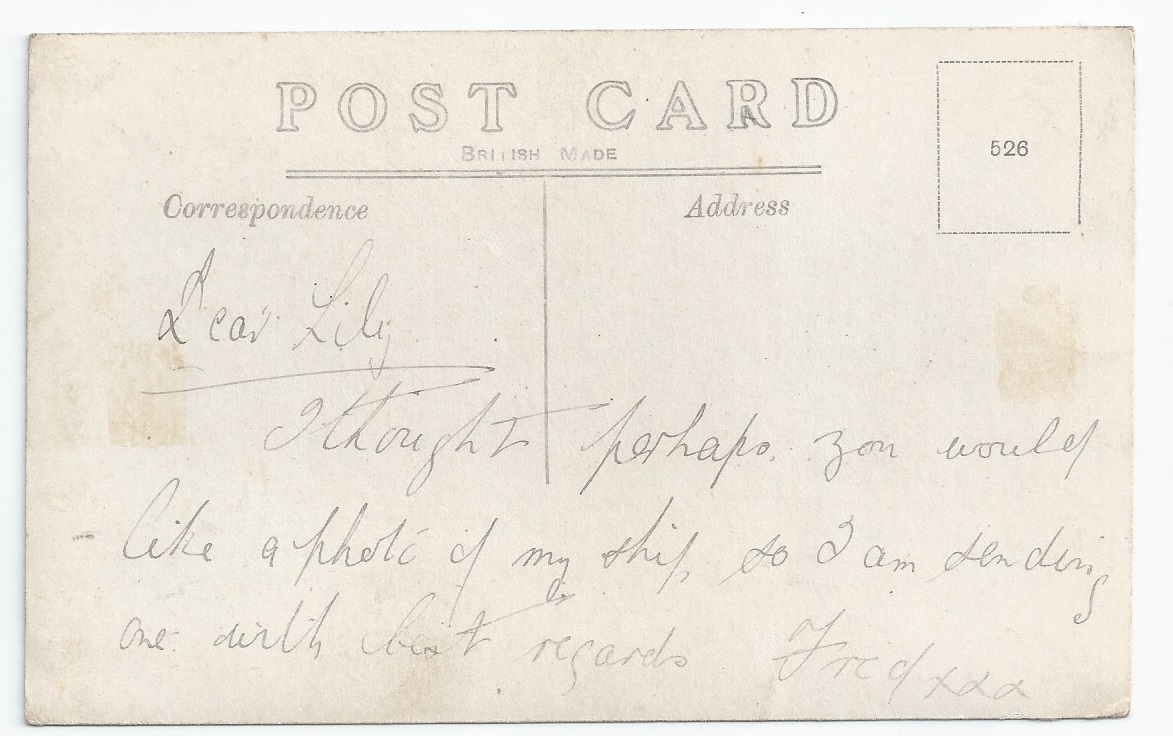 POST CARD
BRITISH MADE
526
Correspondence
Address
Dear Lily
I thought perhaps. you would
like a photo of my ship, so I am sending
one with best regards Fred xxx